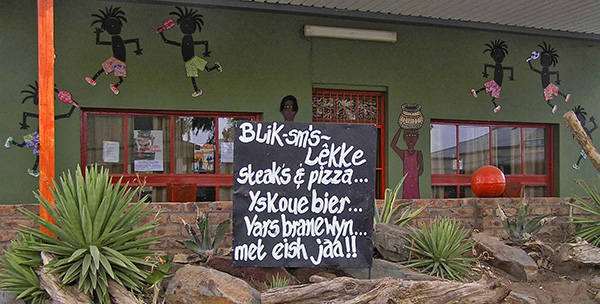 BLiK-sm's-
Lêkke
steak's & pizza...
Yskoue bier...
Vars branewyn...
met eish jaa!!